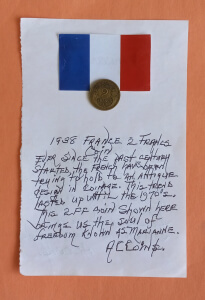 1938 FRANCE 2 FRANCS
COIN
EVER SINCE THE LAST CENTURY
STARTED, THE FRENCH HAVE BEEN
TRYING TO HOLD TO AN ANTIQUE
DESIGN IN COINAGE. THIS TREND
LASTED UP UNTIL THE 1970'S.
THIS 2 FF COIN SHOWN HERE
BRINGS US THE SOUL OF
FREEDOM KNOWN AS MARIANNE.